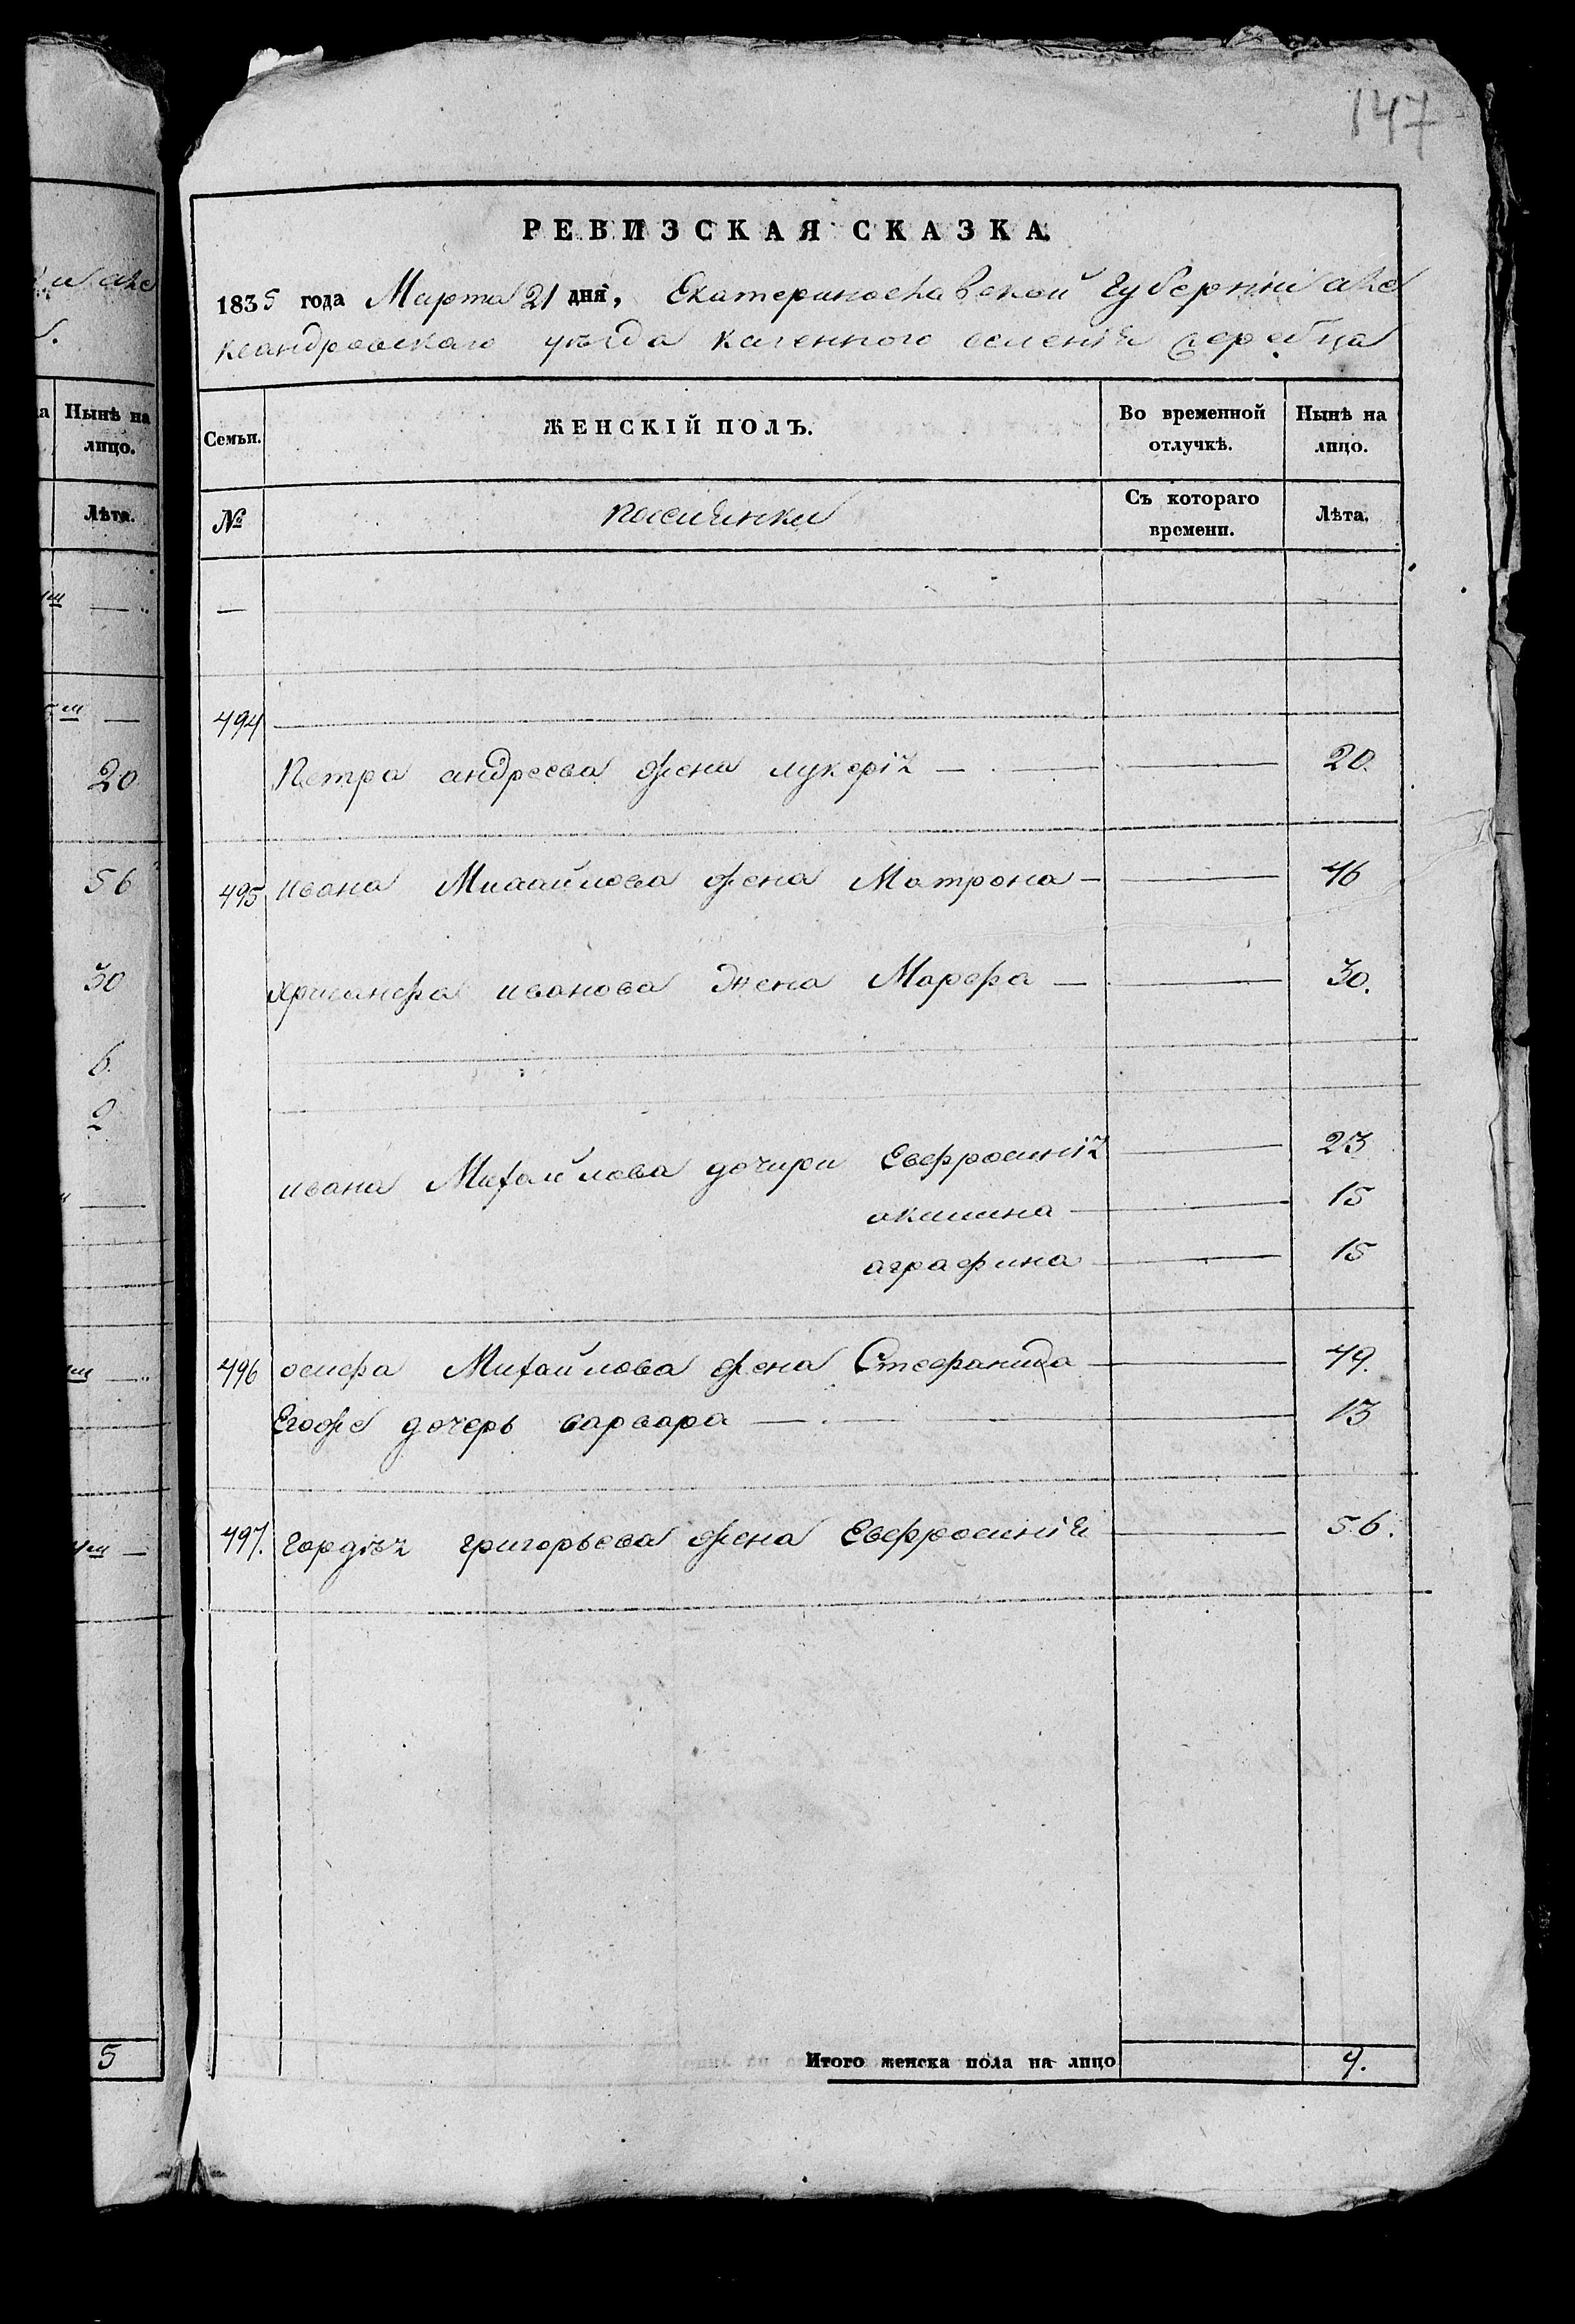 147
и але
.
а Нынѣ на
лицо.
Лѣта.
20
56
30
6
2
5
РЕВИЗСКАЯ СКАЗКА.
1835 года Марта 21 дня, Екатеринославской губернiи але
ксандровского уѣзда казенного селенiя
Семьи. ЖЕНСКIЙ ПОЛЪ. Во временной отлучкѣ. Нынѣ на лицо.
№ Съ котораго времени. Лѣта.
—
494 —
Петра андреева жена лукерiя — — 20.
495 ивана Михайлова жена Матрона — — 46
хрисанфа иванова жена Марфа — — 30.
ивана Михайлова дочири Евфросинiя — 23
акилина — 15
аграфина — 15
496 осифа Михайлова жена Стефанида — 49.
Егоже дочерь варвара — — 13
497. гордѣя григорьева жена Евфросинiя — 56.
Итого женска пола на лицо 9.